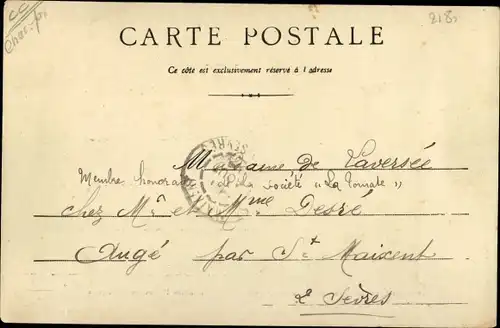 CC
218.
CARTE POSTALE
Ce côté est exclusivement réservé à l'adresse
Madame de Laversée
Membre honoraire de la société "La Tomate"
chez Mr et Mme Desré
Augé par St Maixent
2 Sèvres